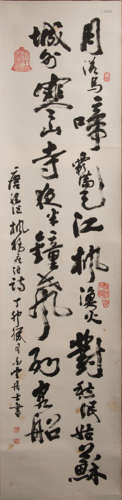 月落烏啼霜滿天江楓漁火對愁眠姑蘇
城外寒山寺夜半鐘聲到客船
唐張繼楓橋夜泊詩丁卯歲月居士書